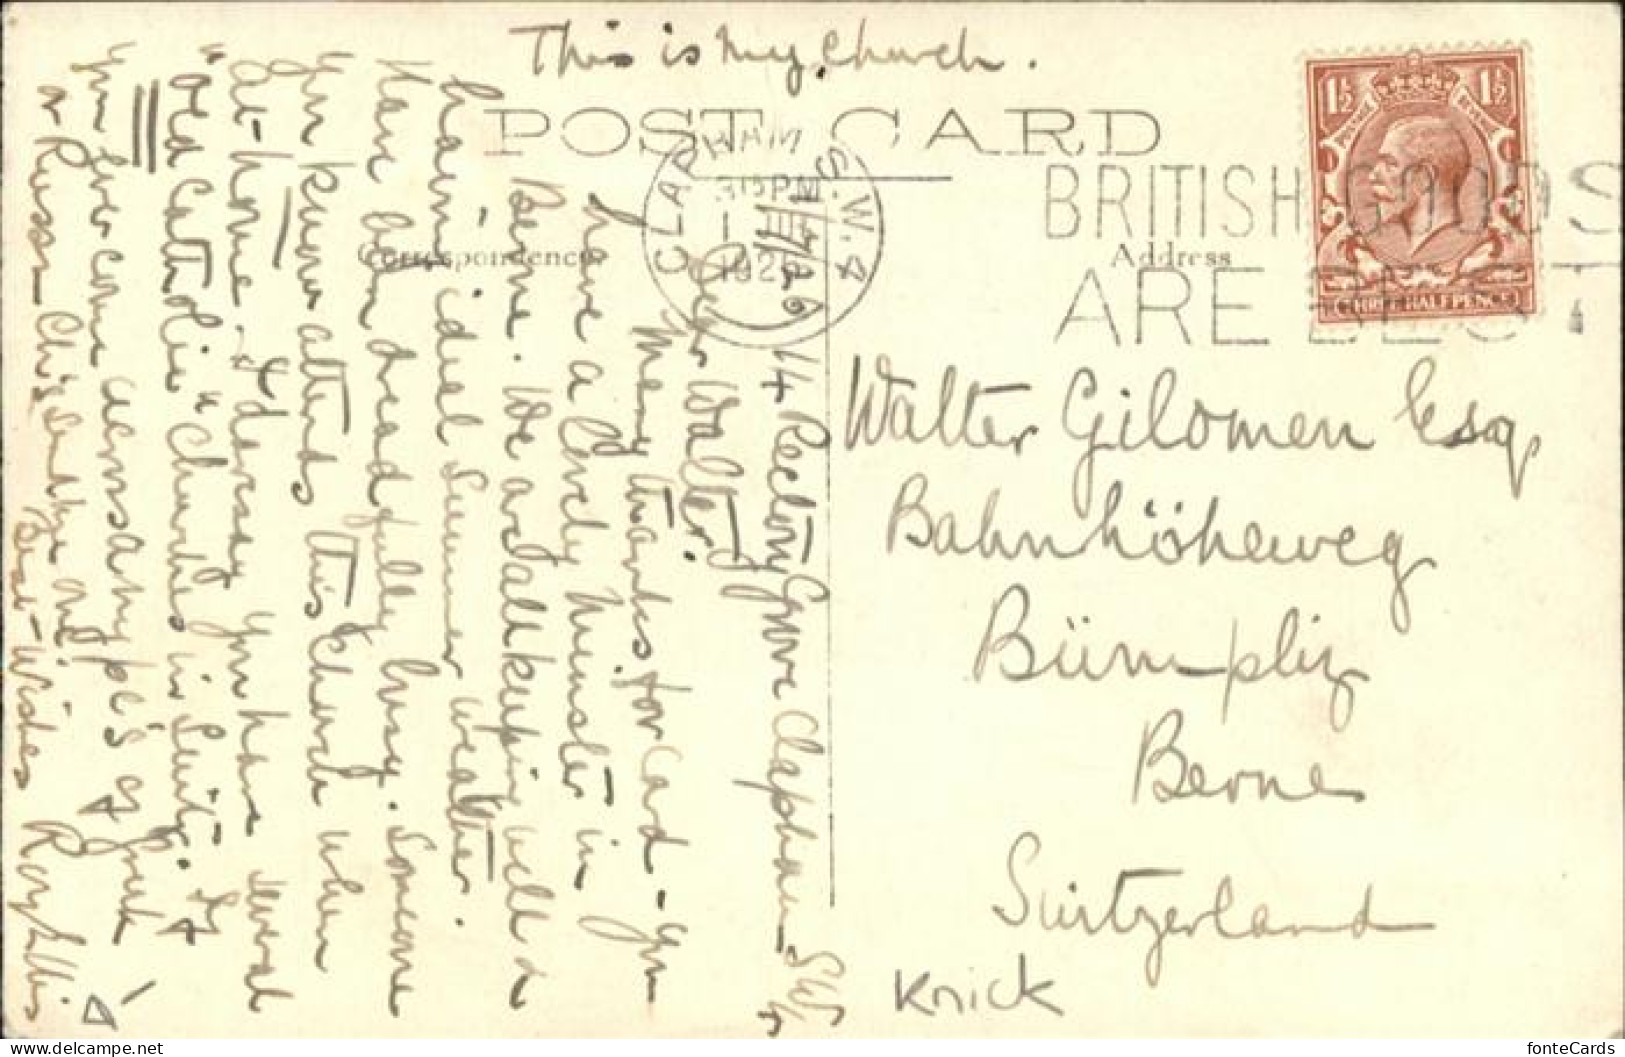 This is my Church.
POST CARD
CLAPHAM S.W.4
30 PM
1926
BRITISH GOODS
ARE BEST
1½ 1½
POSTAGE REVENUE
THREE HALFPENCE
Correspondence
Address
14 Rectory Grove Clapham SW4
17/26
Dear Walter.
Many thanks for Card - you
have a lovely Minster in
Berne. We are all keeping well &
having ideal Summer weather.
Have been dreadfully busy. Someone
you know attends this Church when
at home. I daresay you have several
"Old Catholic" Churches in Switz. If
you ever come across any p.c's of Greek
or Russ Ch's send me one
Best Wishes
Walter Gilomen Esq
Bahnhöheweg
Bümpliz
Berne
Switzerland
Knick
fonteCards